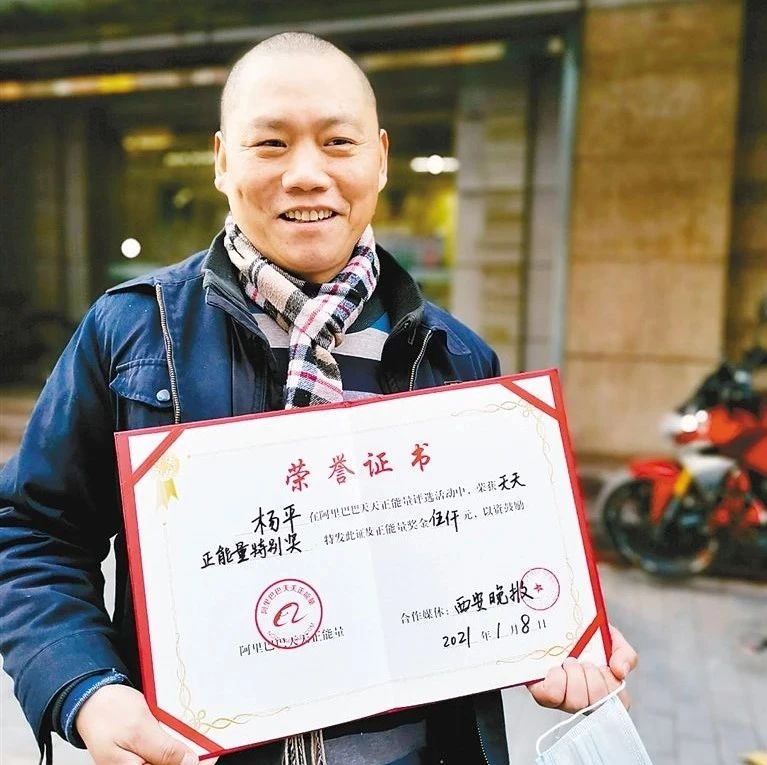 荣誉证书
杨平 在阿里巴巴天天正能量评选活动中，荣获 天天
正能量特别奖 特发此证及正能量奖金 伍仟 元，以资鼓励
阿里巴巴天天正能量
阿里巴巴天天正能量
合作媒体：西安晚报
2021年1月8日